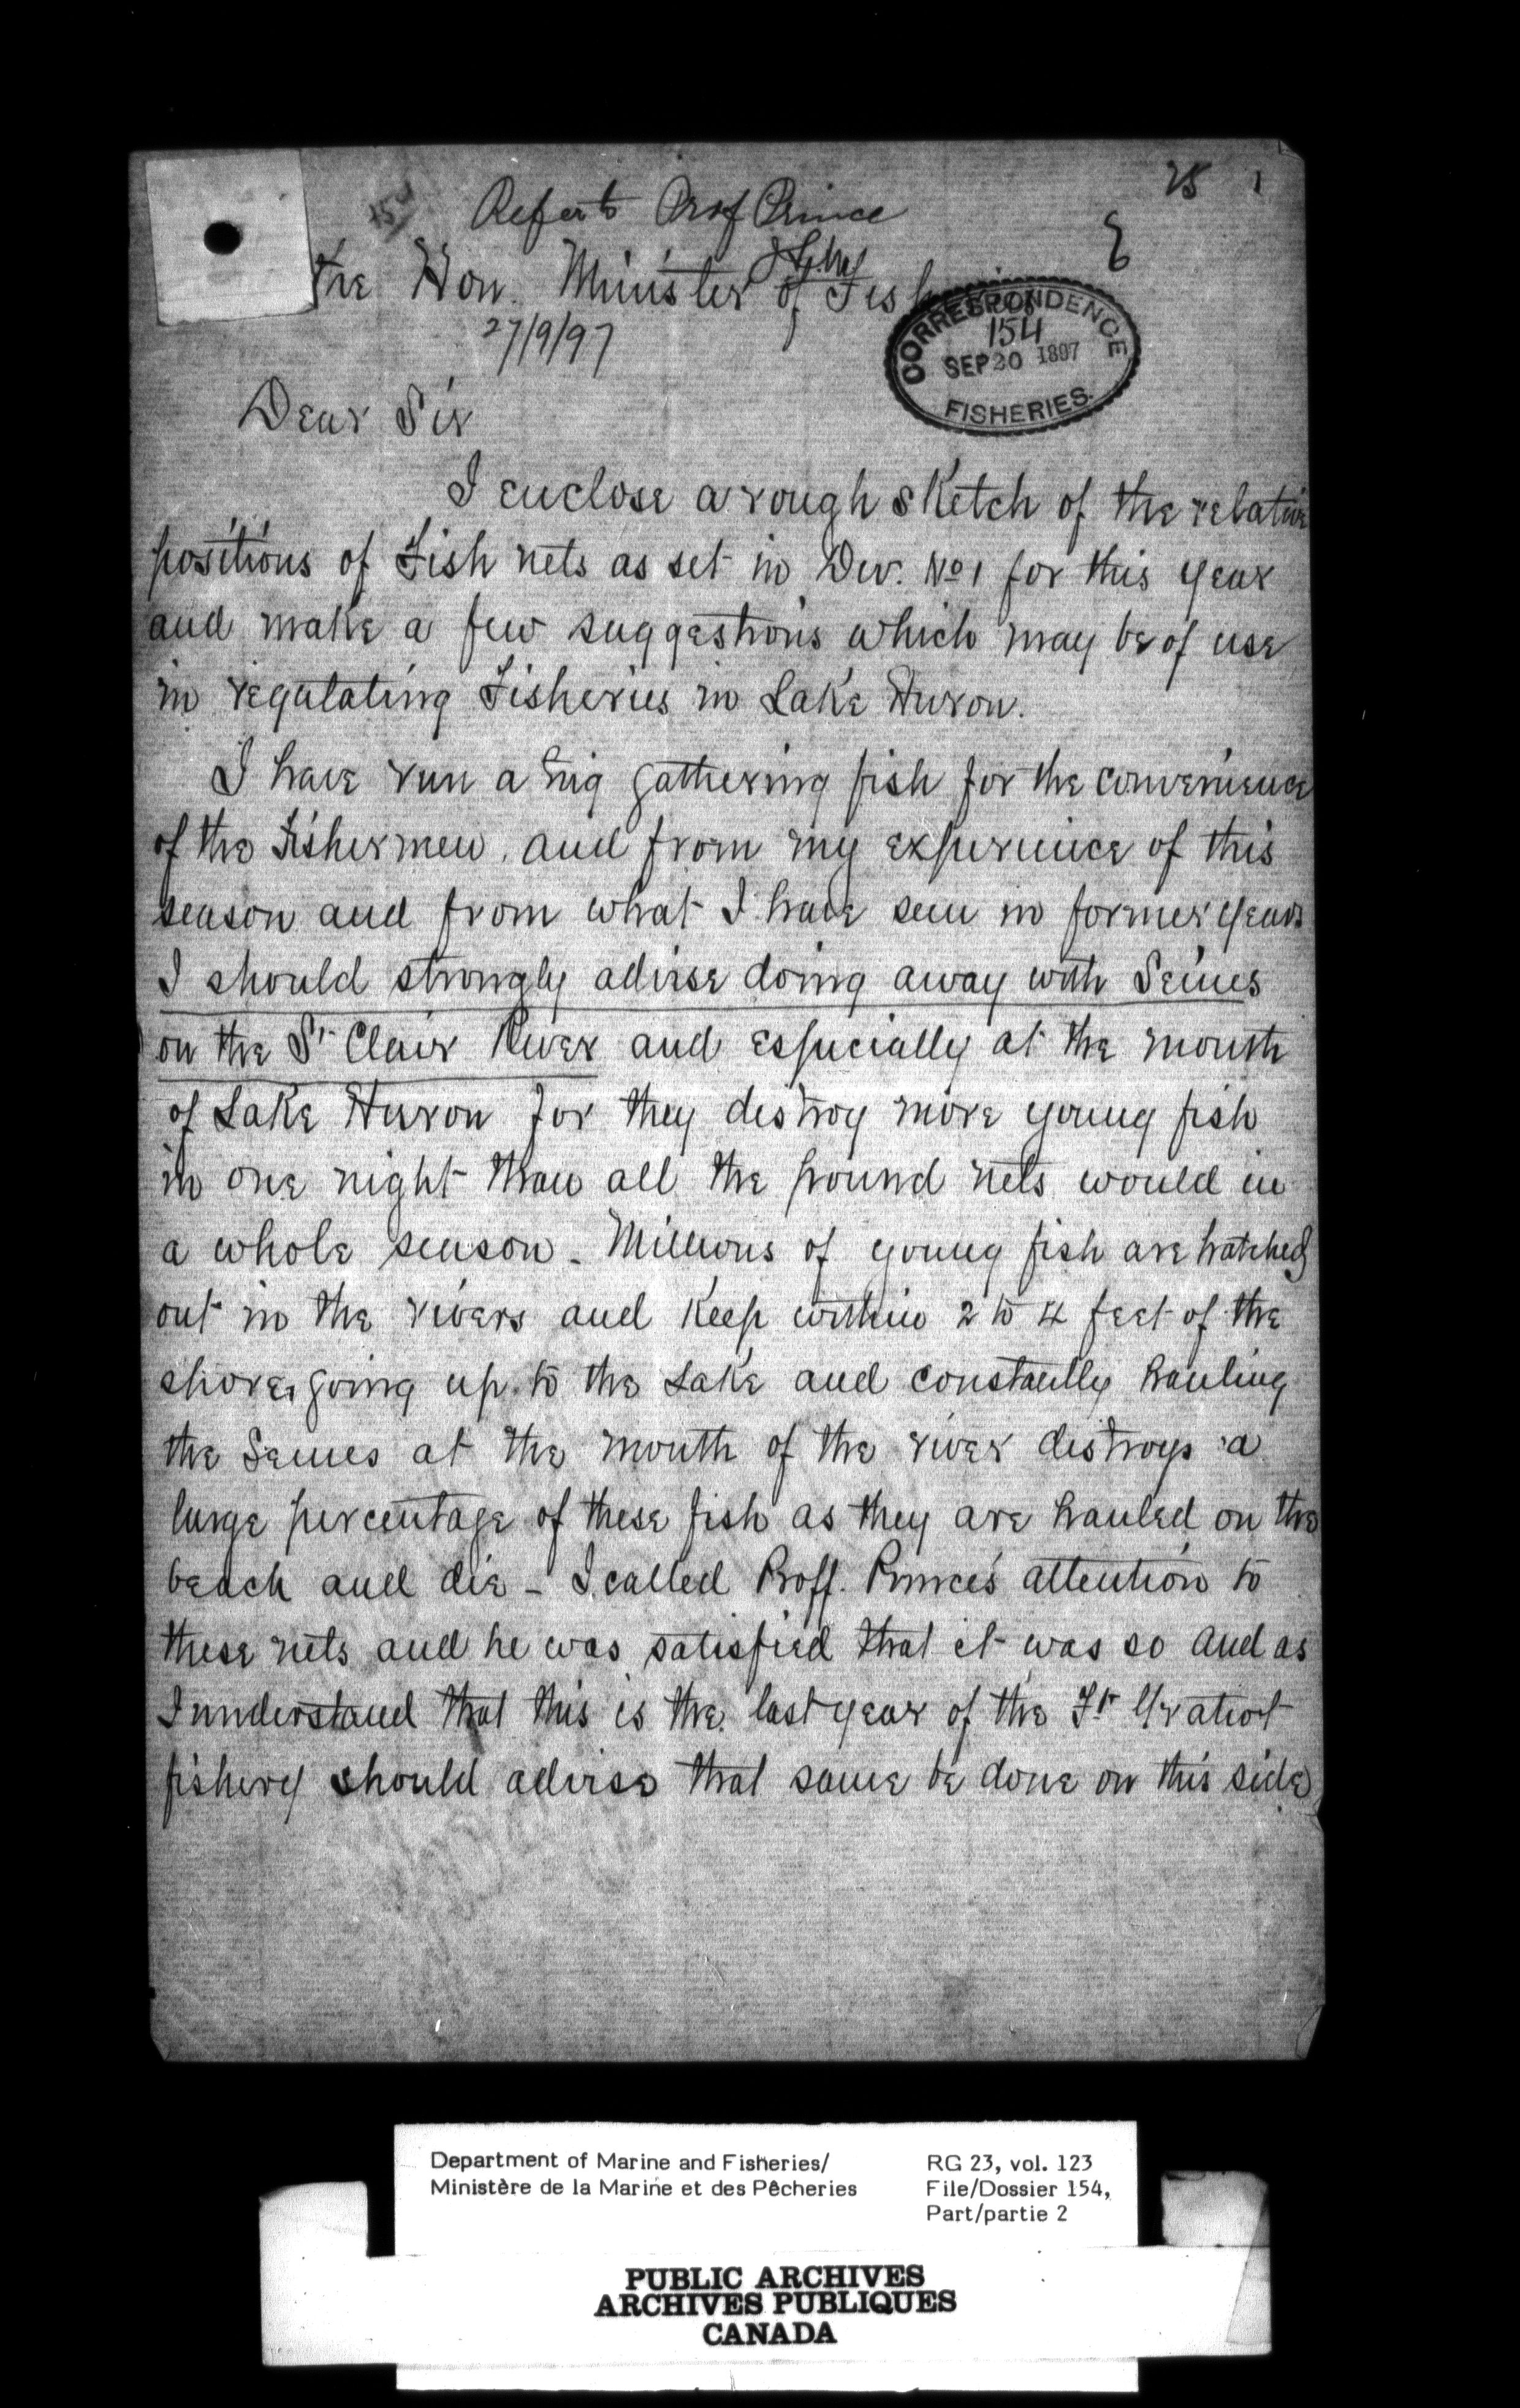 25 1
154
Refer to Prof Prince
the Hon. Minister of Fish
27/9/97
CORRESPONDENCE
154
SEP 20 1897
FISHERIES.
Dear Sir
I enclose a rough sketch of the relative
positions of Fish nets as set in Div. No 1 for this year
and make a few suggestions which may be of use
in regulating Fisheries in Lake Huron.
I have run a tug gathering fish for the convenience
of the Fishermen. and from my experience of this
season and from what I have seen in former years
I should strongly advise doing away with Seines
on the St Clair River and especially at the mouth
of Lake Huron for they destroy more young fish
in one night than all the pound nets would in
a whole season - Millions of young fish are hatched
out in the rivers and keep within 2 to 4 feet of the
shore, going up to the Lake and constantly hauling
the Seines at the mouth of the river destroys a
large percentage of these fish as they are hauled on the
beach and die - I called Proff. Prince's attention to
these nets and he was satisfied that it was so and as
I understand that this is the last year of the Ft Gratiot
fishery should advise that same be done on this side
Department of Marine and Fisheries/
Ministère de la Marine et des Pêcheries
RG 23, vol. 123
File/Dossier 154,
Part/partie 2
PUBLIC ARCHIVES
ARCHIVES PUBLIQUES
CANADA